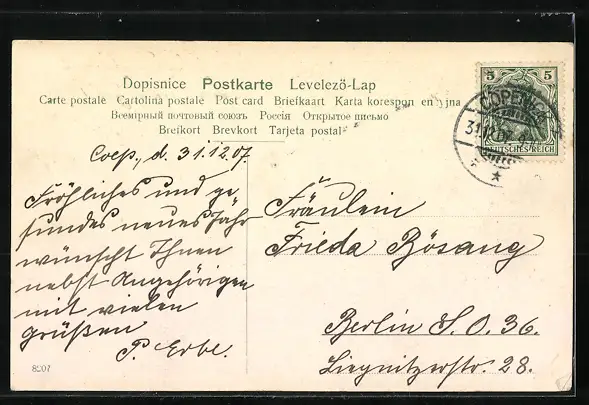 Dopisnice Postkarte Levelező-Lap
Carte postale Cartolina postale Post card Briefkaart Karta korespondencyjna
Всемірный почтовый союзъ Россія Открытое письмо
Brefkort Brevkort Tarjeta postal
5 5
DEUTSCHES REICH
31.12.07
Coep., d. 31.12.07.
Fröhliches und ge
sundes neues Jahr
wünscht Ihnen
nebst Angehörigen
mit vielen
grüßen
P. Erbe.
Fräulein
Frieda Bösang
Berlin S.O. 36.
Liegnitzerstr. 28.
8207